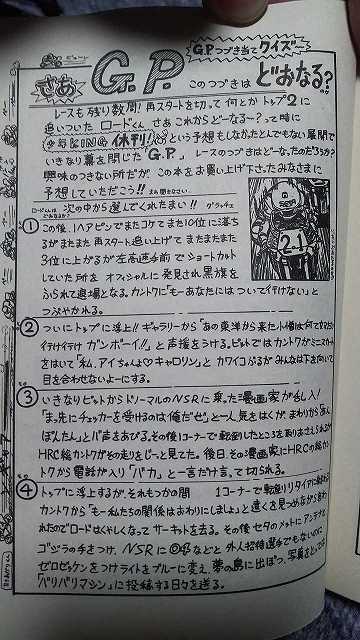 G.P.つづき当てクイズ
さあ G.P. このつづきは どおなる?
レースも残り数周! 再スタートを切って何とかトップ2に
追いついたロードくん さあこれからどーなる〜?って時に
少年KING休刊! という予想もしなかったとんでもない展開で
いきなり幕を閉じた「G.P.」 レースのつづきはどーなったのだろうか?
興味のつきない所だが この本をお買い上げ下さったみなさまに
予想していただこう!!
ロードくんは 次の中から選んでくれたまい!!
① この後、1ヘアピンでまたコケてまた10位に落ち
るがまたまた再スタート追い上げてまたまたまた
3位に上がるが左高速手前でショートカット
していた所をオフィシャルに発見され黒旗を
ふられて退場となる。カントクに「もーあなたにはついて行けない」と
つぶやかれる。
21
② ついにトップに浮上!! ギャラリーから「あの東洋から来た小僧は何て
イケイケ ガンボーイ!!」と声援をうける。ピットではカントクがミニスカート
をはいて「私、アイちゃんよ♡キャロリン」とカワイコぶるがみんなは下を向いて
目を合わせないよーにする。
③ いきなりピットからドノーマルのNSRに乗った漫画家が乱入!
「まっ先にチェッカーを受けるのは俺だぜ」と一人気をはくが、まわりから
ぽんたん」とバ声をあびる。その後1コーナーで転倒したところを取りおさえられるが
HRC総カントクがその走りをじっと見てた。後日、その漫画家にHRCの総カン
トクから電話が入り「バカ」と一言だけ言って切られる。
④ トップに浮上するが、それもつかの間 1コーナーで転倒リタイアに
カントクから「もー私たちの関係はおわりにしましょ」と遠くを見つめながら言わ
れたのでロードはくやしくなってサーキットを去る。その後セタのメットにアンテナと
ゴジラの手をつけ、NSRに などと外人招待選手でもないのに
ゼロゼッケンをつけライトをブルーに変え、夢の島に出ぼつ、写真を
「バリバリマシン」に投稿する日々を送る。